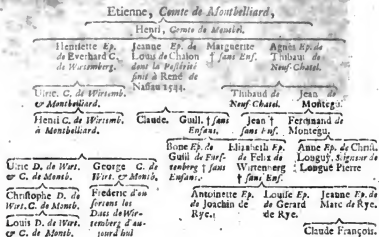 Etienne, Comte de Montbelliard,
Henri, Comte de Montbel.
Henriette Ep. de Everhard C. de Wirtemberg.
Jeanne Ep. de Louis de Chalon dont la Posterité finit à René de Nassau 1544.
Marguerite † sans Enf.
Agnès Ep. de Thibaut de Neuf-Chatel.
Ulric C. de Wirtemb. & Montbelliard.
Thibaud de Neuf-Chatel.
Jean de Montegu.
Henri C. de Wirtemb. à Montbelliard.
Claude.
Guill. † sans Enfans.
Jean † sans Enf.
Ferdinand de Montegu.
Bone Ep. de Guill de Furstenberg † sans Enfans.
Elisabeth Ep. de Felix de Wirtemberg † sans Enf.
Anne Ep. de Christ. Longuy, Signeur de Longue Pierre
Ulric D. de Wirt. & C. de Montb.
George C. de Wirt. & Montb.
Christophe D. de Wirt. C. de Montb.
Frederic d'ou sortent les Ducs de Wirtemberg d'aujourd'hui
Antoinette Ep. de Joachin de Rye.
Louise Ep. de Gerard de Rye.
Jeanne Ep. de Marc de Rye.
Louis D. de Wirt. & C. de Montb.
Claude François.